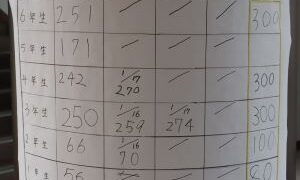 6年生 251 / / / 300
5年生 171 / / /
4年生 242 1/17 270 / / 300
3年生 250 1/16 259 1/17 274 / 300
2年生 66 1/16 70 / / 100
56 / / / 80